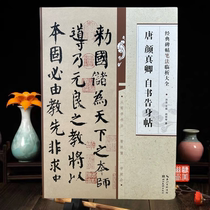 经典碑帖笔法临析大全
唐 颜真卿 自书告身帖
勅國儲為天下之本師
導乃元良之教將以
本固必由教先非求